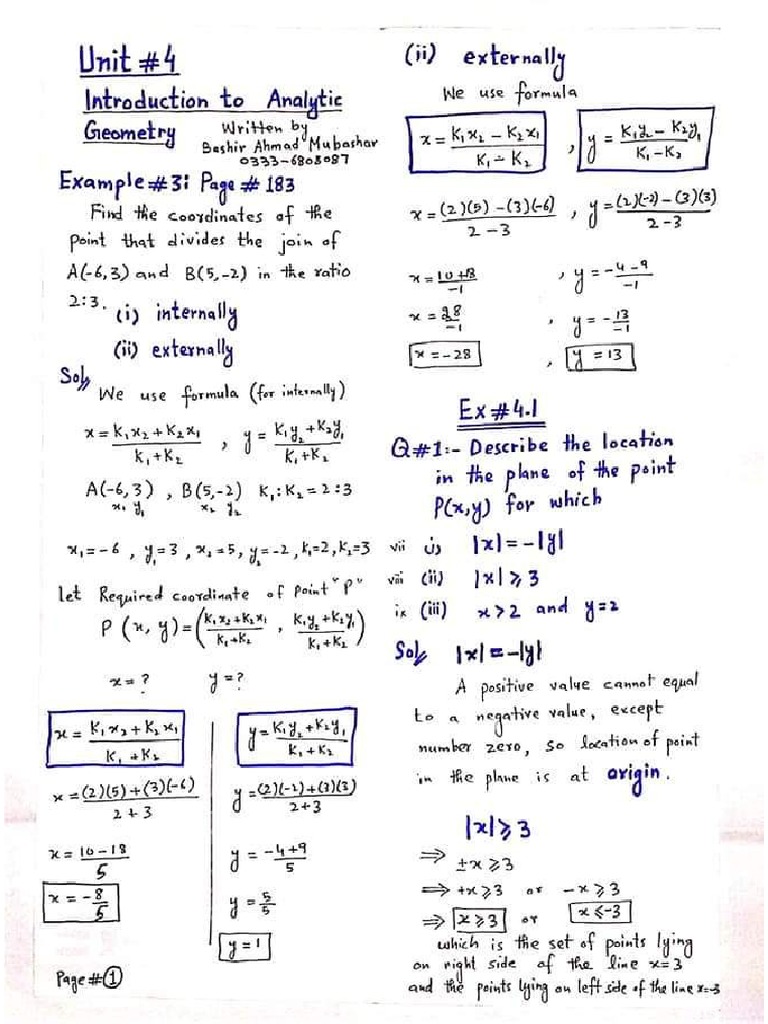 Unit #4
Introduction to Analytic
Geometry
Written by
Bashir Ahmad Mubashar
0333-6803087
Example #3: Page # 183
Find the coordinates of the
point that divides the join of
A(-6,3) and B(5,-2) in the ratio
2:3. (i) internally
(ii) externally
Sol,
We use formula (for internally)
x = K₁x₂ + K₂x₁ / K₁ + K₂ , y = K₁y₂ + K₂y₁ / K₁ + K₂
A(-6,3) , B(5,-2) K₁:K₂ = 2:3
x₁ y₁ x₂ y₂
x₁ = -6 , y₁ = 3 , x₂ = 5, y₂ = -2 , K₁=2, K₂=3
let Required coordinate of point "P"
P (x, y) = (K₁x₂+K₂x₁ / K₁+K₂ , K₁y₂+K₂y₁ / K₁+K₂)
x = ? y = ?
x = K₁x₂ + K₂x₁ / K₁ + K₂
x = (2)(5) + (3)(-6) / 2 + 3
x = 10 - 18 / 5
x = -8 / 5
y = K₁y₂ + K₂y₁ / K₁ + K₂
y = (2)(-2) + (3)(3) / 2 + 3
y = -4 + 9 / 5
y = 5 / 5
y = 1
Page #①
(ii) externally
We use formula
x = K₁x₂ - K₂x₁ / K₁ - K₂ , y = K₁y₂ - K₂y₁ / K₁ - K₂
x = (2)(5) - (3)(-6) / 2 - 3 , y = (2)(-2) - (3)(3) / 2 - 3
x = 10 + 18 / -1 , y = -4 - 9 / -1
x = 28 / -1 , y = -13 / -1
x = -28 , y = 13
Ex #4.1
Q #1:- Describe the location
in the plane of the point
P(x,y) for which
vii i) |x| = -|y|
viii (ii) |x| ⩾ 3
ix (iii) x > 2 and y = 2
Sol, |x| = -|y|
A positive value cannot equal
to a negative value, except
number zero, so location of point
in the plane is at origin.
|x| ⩾ 3
⇒ ±x ⩾ 3
⇒ +x ⩾ 3 or -x ⩾ 3
⇒ x ⩾ 3 or x ⩽ -3
which is the set of points lying
on right side of the line x=3
and the points lying on left side of the line x=-3